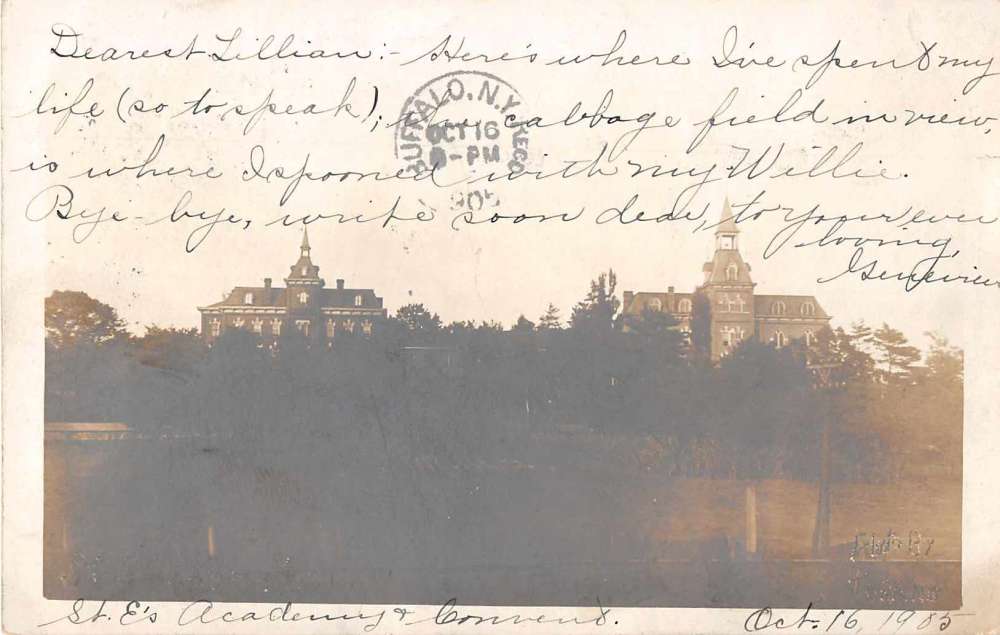 Dearest Lillian:- Here's where I've spent my
life (so to speak); the cabbage field in view,
is where I spooned with my Willie.
Bye-bye, write soon dear, to your ever
loving,
Genevieve
BUFFALO, N.Y.
OCT 16
-PM
1905
REC'D
Photo By
St. E's Academy & Convent. Oct. 16, 1905